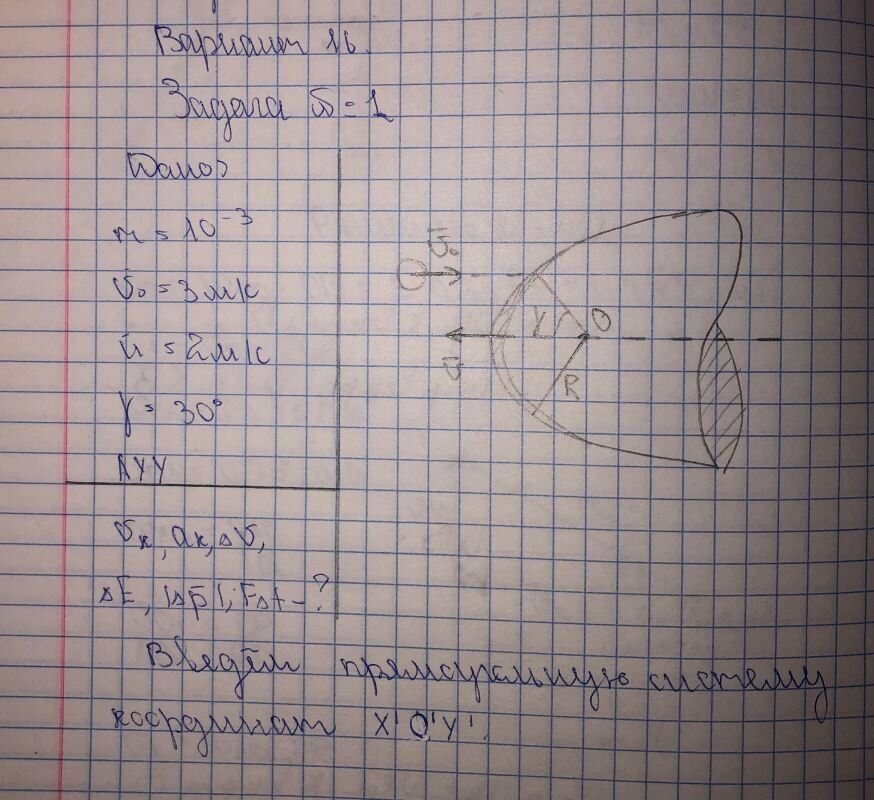 Вариант 16.
Задача №1
Дано:
m = 10⁻³
υ₀ = 3 м/с
u = 2 м/с
γ = 30°
АУУ
υₖ, αₖ, Δυ,
ΔE, |Δp̄|, FΔt - ?
ῡ₀
γ
O
ῡ
R
Введём прямоугольную систему
координат X'O'Y'.